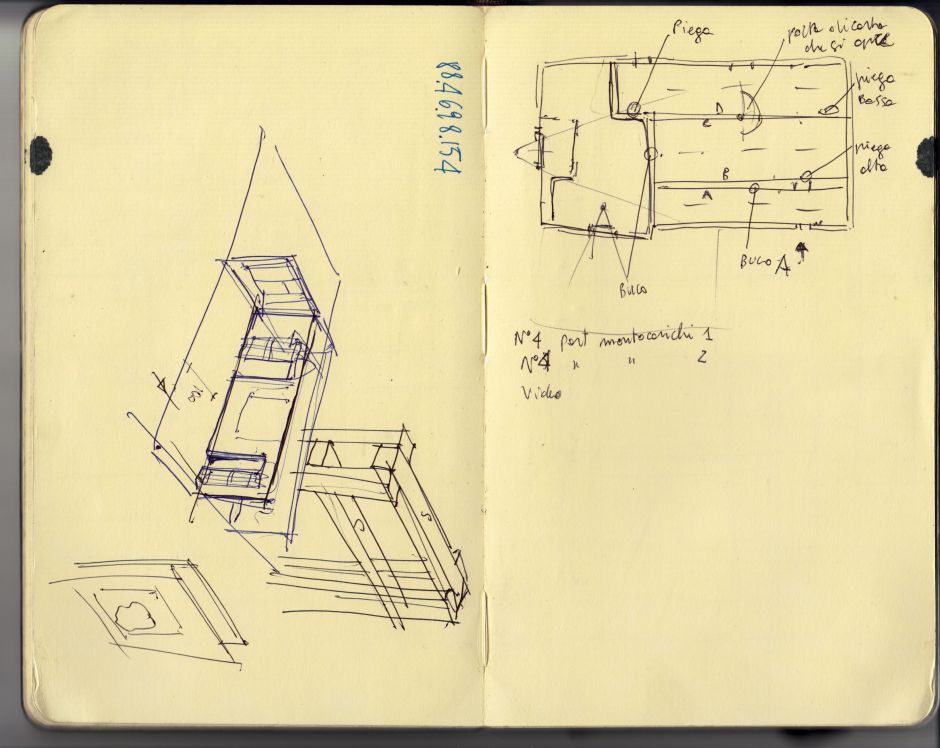 88.46.98.154
160
Piega
porta di carta
che si apre
piega
Bassa
D
C
piega
alta
B
A
BUCO
BUCO A
N°4 port montacarichi 1
N°4 " " 2
Video